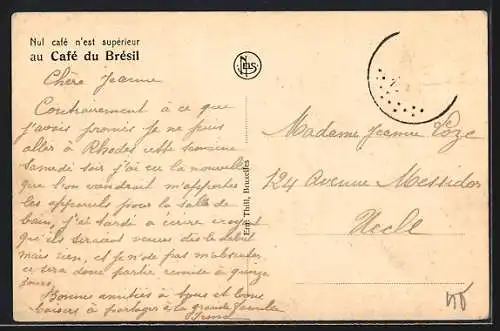 Nul café n'est supérieur
au Café du Brésil
Chère Jeanne
Contrairement à ce que
j'avais promis je ne puis
aller à Rhodes cette semaine
samedi soir j'ai eu la nouvelle
que l'on voudrait m'apporter
les appareils pour la salle de
bain, j'ai tardé à écrire croyant
qu'ils seraient venus dès le début
mais rien, et je n'ose pas m'absenter,
ce sera donc partie remise à quinze
jours.
Bonnes amitiés à tous et bons
baisers à partager à la grande famille
NELS
Ern. Thill, Bruxelles
Madame Jeanne
124 Avenue Messidor
Uccle